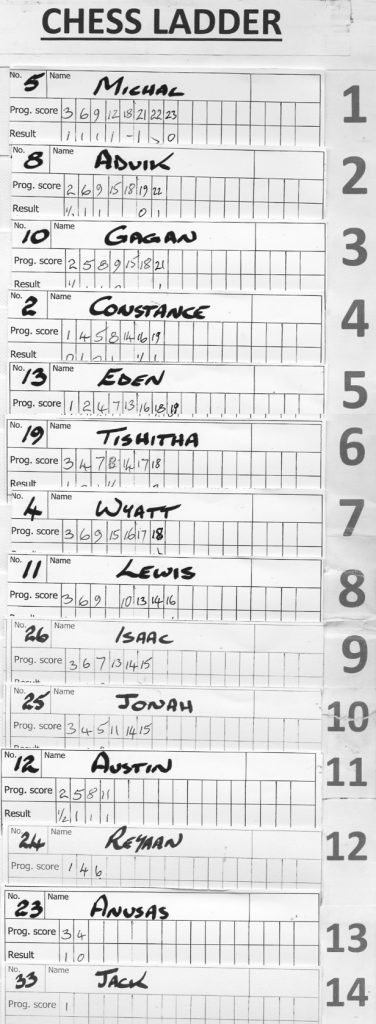 CHESS LADDER
No. 5 Name MICHAL 1
Prog. score 3 6 9 12 18 21 22 23
Result 1 1 1 1 - 1 0
No. 8 Name ADVIK 2
Prog. score 2 6 9 15 18 19 22
Result ½ 1 1 0 1
No. 10 Name GAGAN 3
Prog. score 2 5 8 9 15 18 21
No. 2 Name CONSTANCE 4
Prog. score 1 4 5 8 14 16 19
Result 0 1 0 1 ½ 1
No. 13 Name EDEN 5
Prog. score 1 2 4 7 13 16 18 19
No. 19 Name TISHITHA 6
Prog. score 3 4 7 13 14 17 18
No. 4 Name WYATT 7
Prog. score 3 6 9 15 16 17 18
No. 11 Name LEWIS 8
Prog. score 3 6 9 10 13 14 16
No. 26 Name ISAAC 9
Prog. score 3 6 7 13 14 15
No. 25 Name JONAH 10
Prog. score 3 4 5 11 14 15
No. 12 Name AUSTIN 11
Prog. score 2 5 8 11
Result ½ 1 1 1
No. 24 Name REYAAN 12
Prog. score 1 4 6
No. 23 Name ANUSAS 13
Prog. score 3 4
Result 1 0
No. 33 Name JACK 14
Prog. score 1